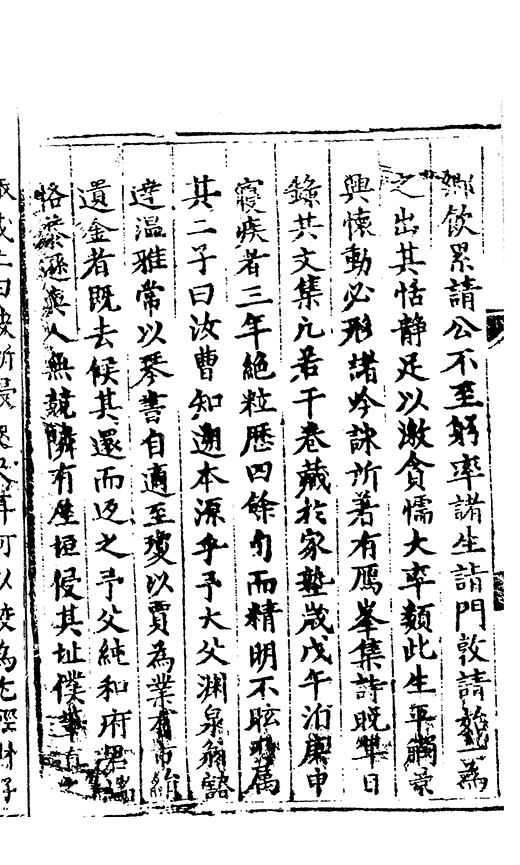 鄉飲累請公不至躬率諸生詣門敦請 一為
之出其恬靜足以激貪懦大率類此生平觸景
興懷動必形諸吟詠所著有鴈峯集詩晚年日
錄其文集凡若干卷藏於家塾歲戊午洎庚申
寢疾者三年絕粒歷四餘旬而精明不眩 屬
其二子曰汝曹知遡本源乎予大父淵泉翁豁
達溫雅常以琴書自適至瓊以賈為業有市紬
遺金者既去候其還而返之予父純和府君端
恪 遜與人無競隣有 垣侵其址僕輩有